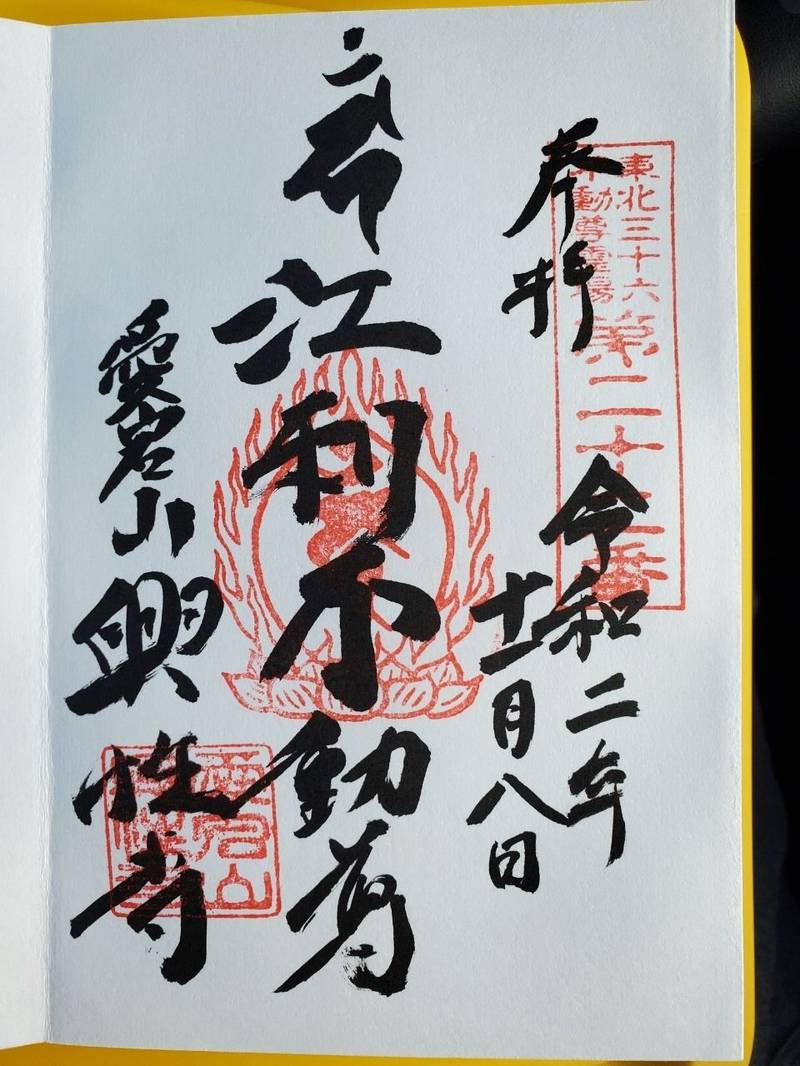 東北三十六
不動尊霊場
第二十番
奉拝
令和二年
十一月八日
江利不動尊
愛宕山 興性寺